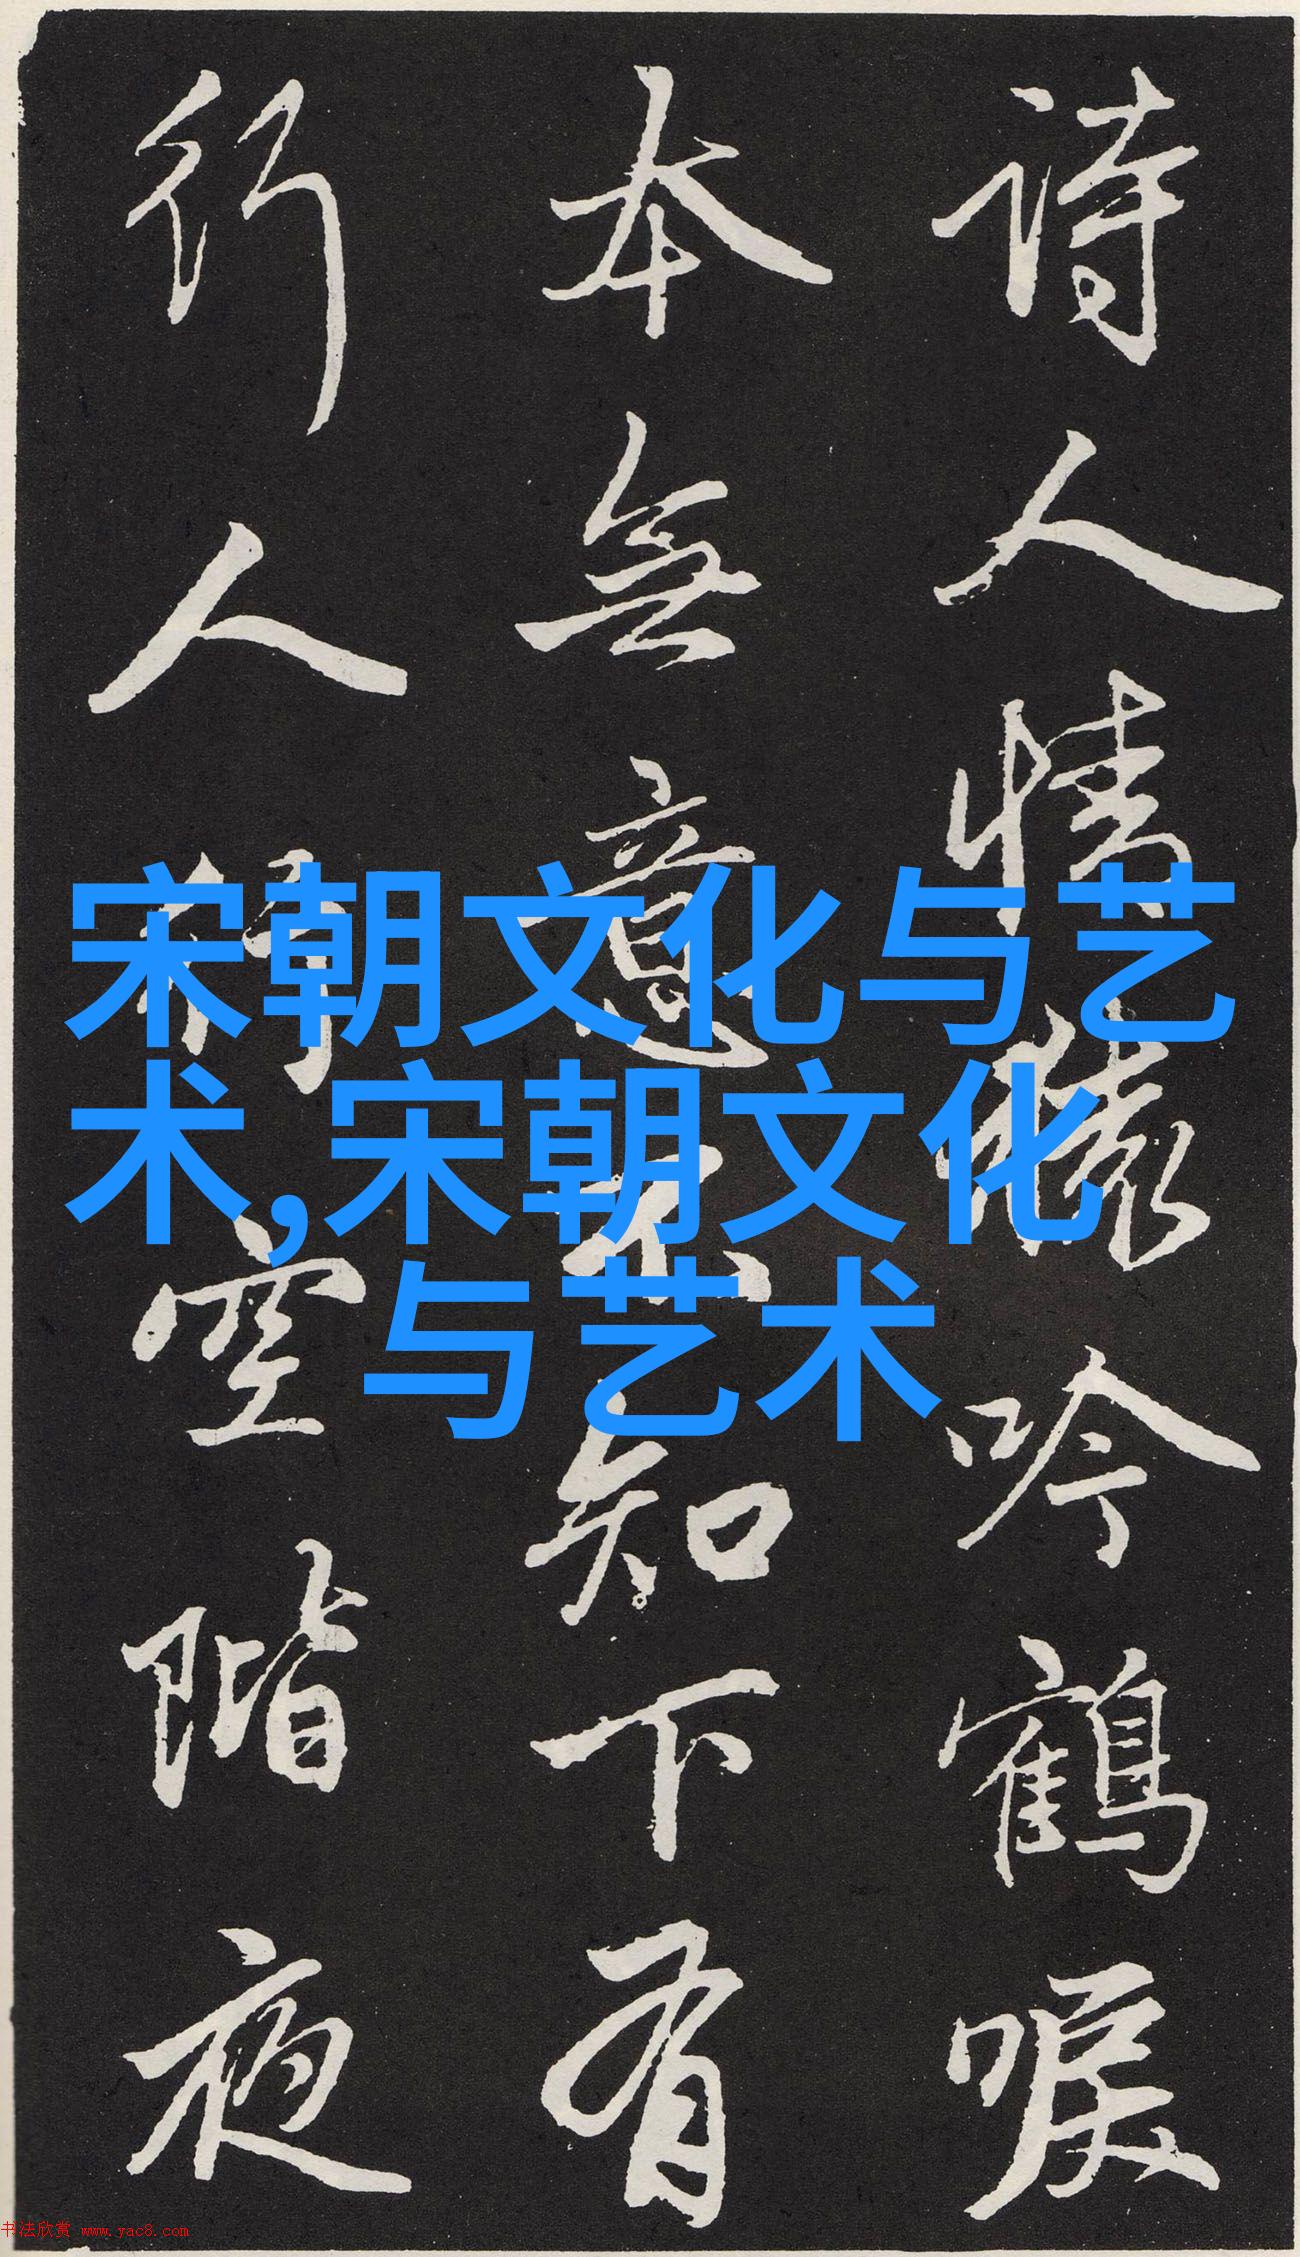 诗人情猿吟鹤唳
本无意不知下有
行人行空阶夜
宋朝文化与艺
术,宋朝文化
与艺术
书法欣赏 www.yac8.com